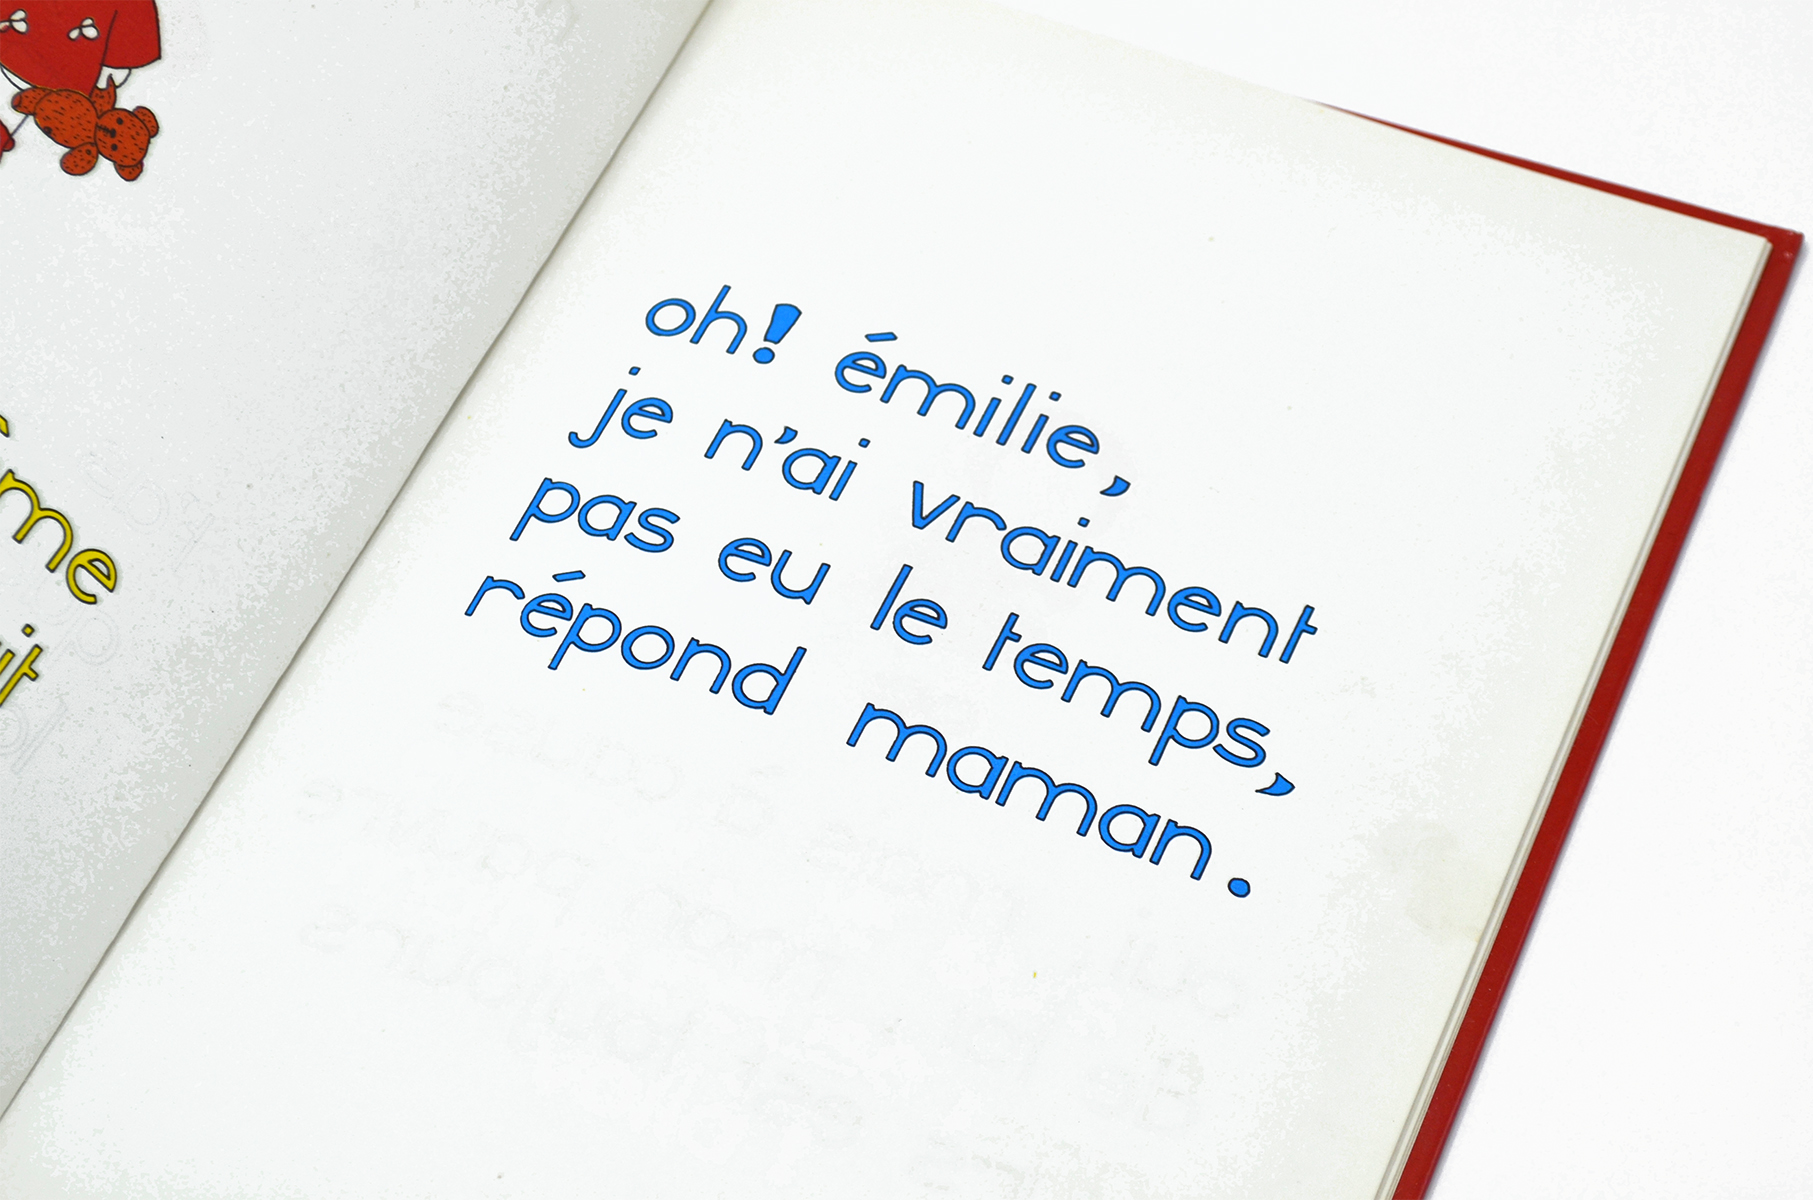 oh! émilie,
je n'ai vraiment
pas eu le temps,
répond maman.